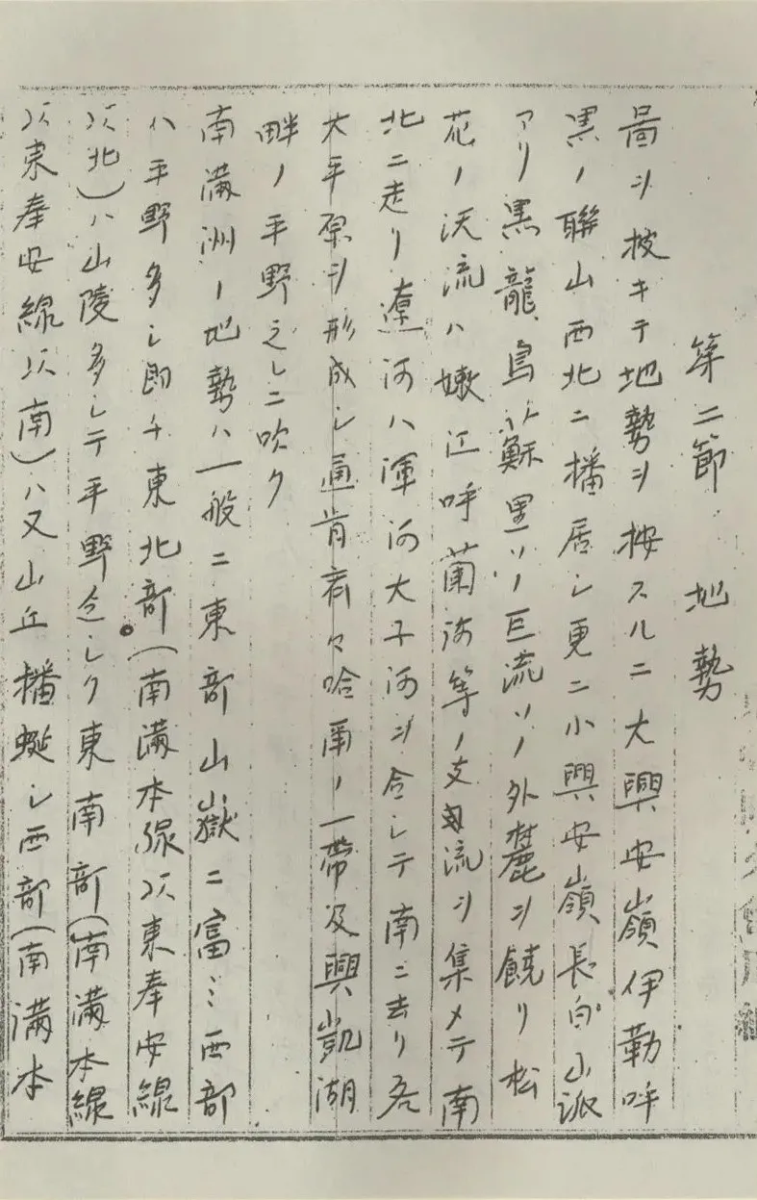 第二節　地勢
圖ヲ披キテ地勢ヲ按スルニ大興安嶺伊勒呼
黒ノ聯山西北ニ播居シ更ニ小興安嶺長白山派
アリ黒龍、烏蘇里ノ巨流ソノ外麓ヲ饒リ松
花ノ沃流ハ嫩江呼蘭河等ノ支流ヲ集メテ南
北ニ走リ遼河ハ渾河大子河ヲ合シテ南ニ去リ各
大平原ヲ形成シ通肯斉々哈爾ノ一帶及興凱湖
畔ノ平野之レニ吹ク
南滿洲ノ地勢ハ一般ニ東部山嶽ニ富ミ西部
ハ平野多シ即チ東北部(南滿本線以東奉安線
以北)ハ山陵多シテ平野乏シク東南部(南滿本線
以東奉安線以南)ハ又山丘播蜒シ西部(南滿本